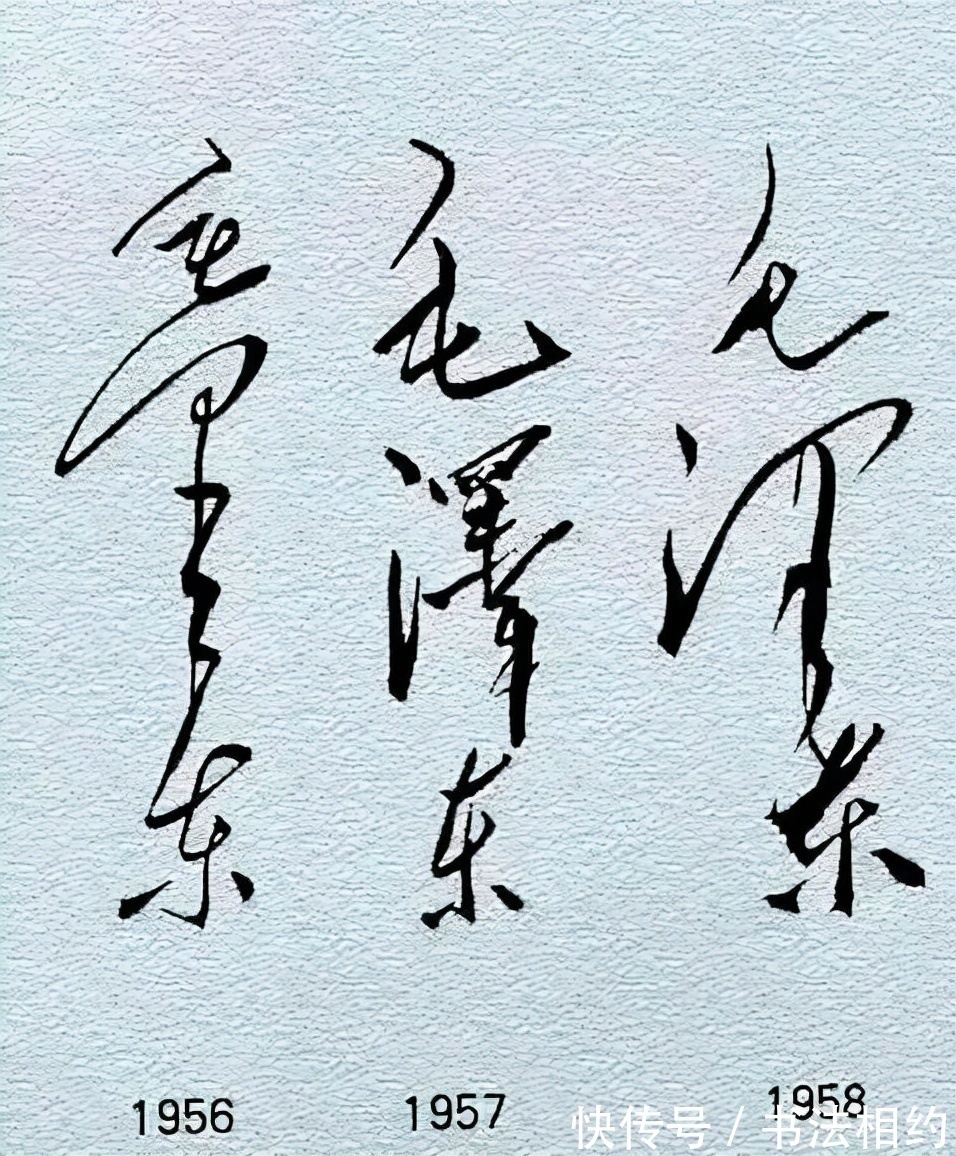 毛泽东
毛澤东
毛泽东
1956
1957
1958
快传号 / 书法相约